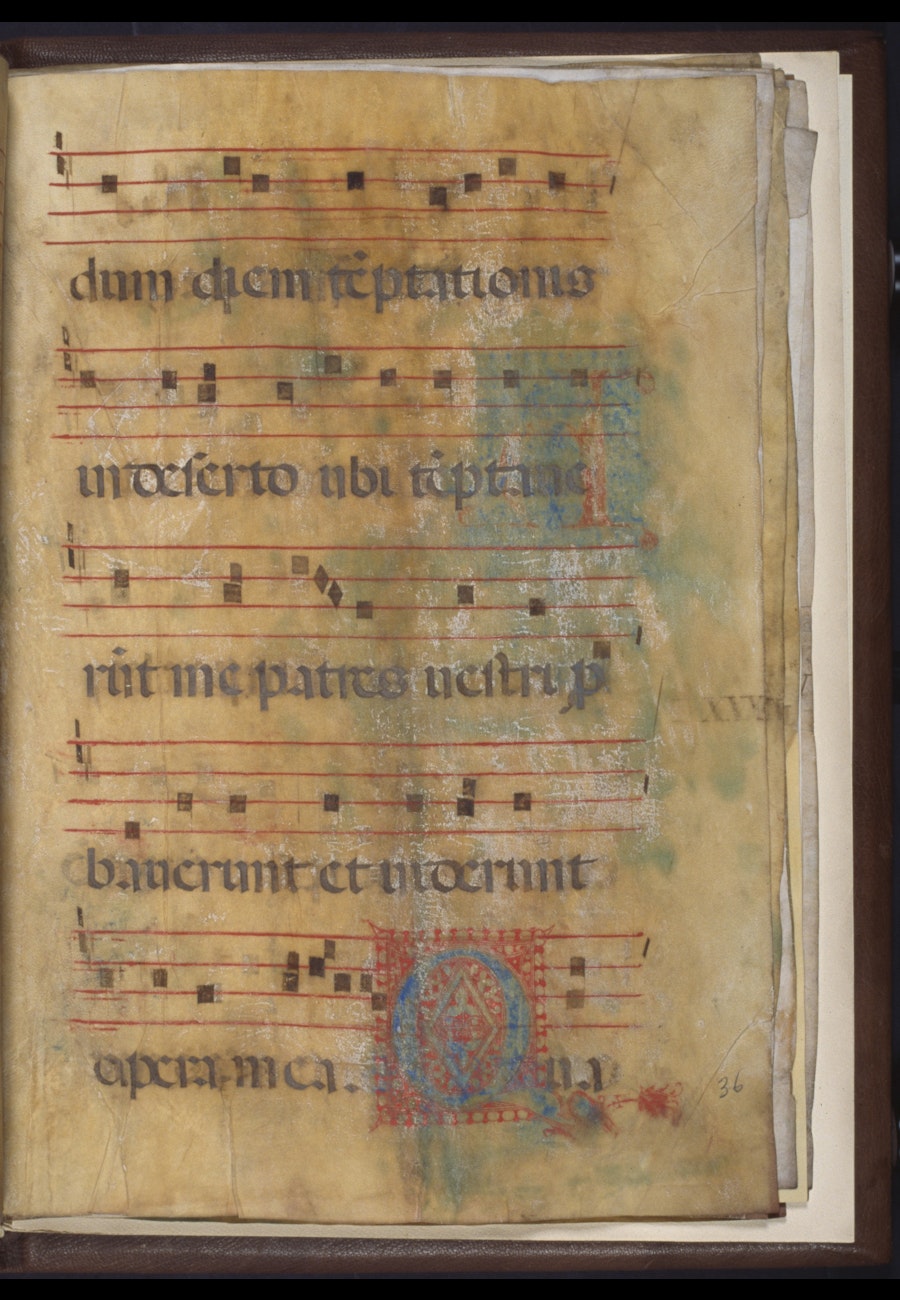 dum diem te᷃ptationis
in deserto ubi te᷃ptaue
ru᷃t me patres uestri ꝓ
bauerunt et uiderunt
opera mea. Qua
36